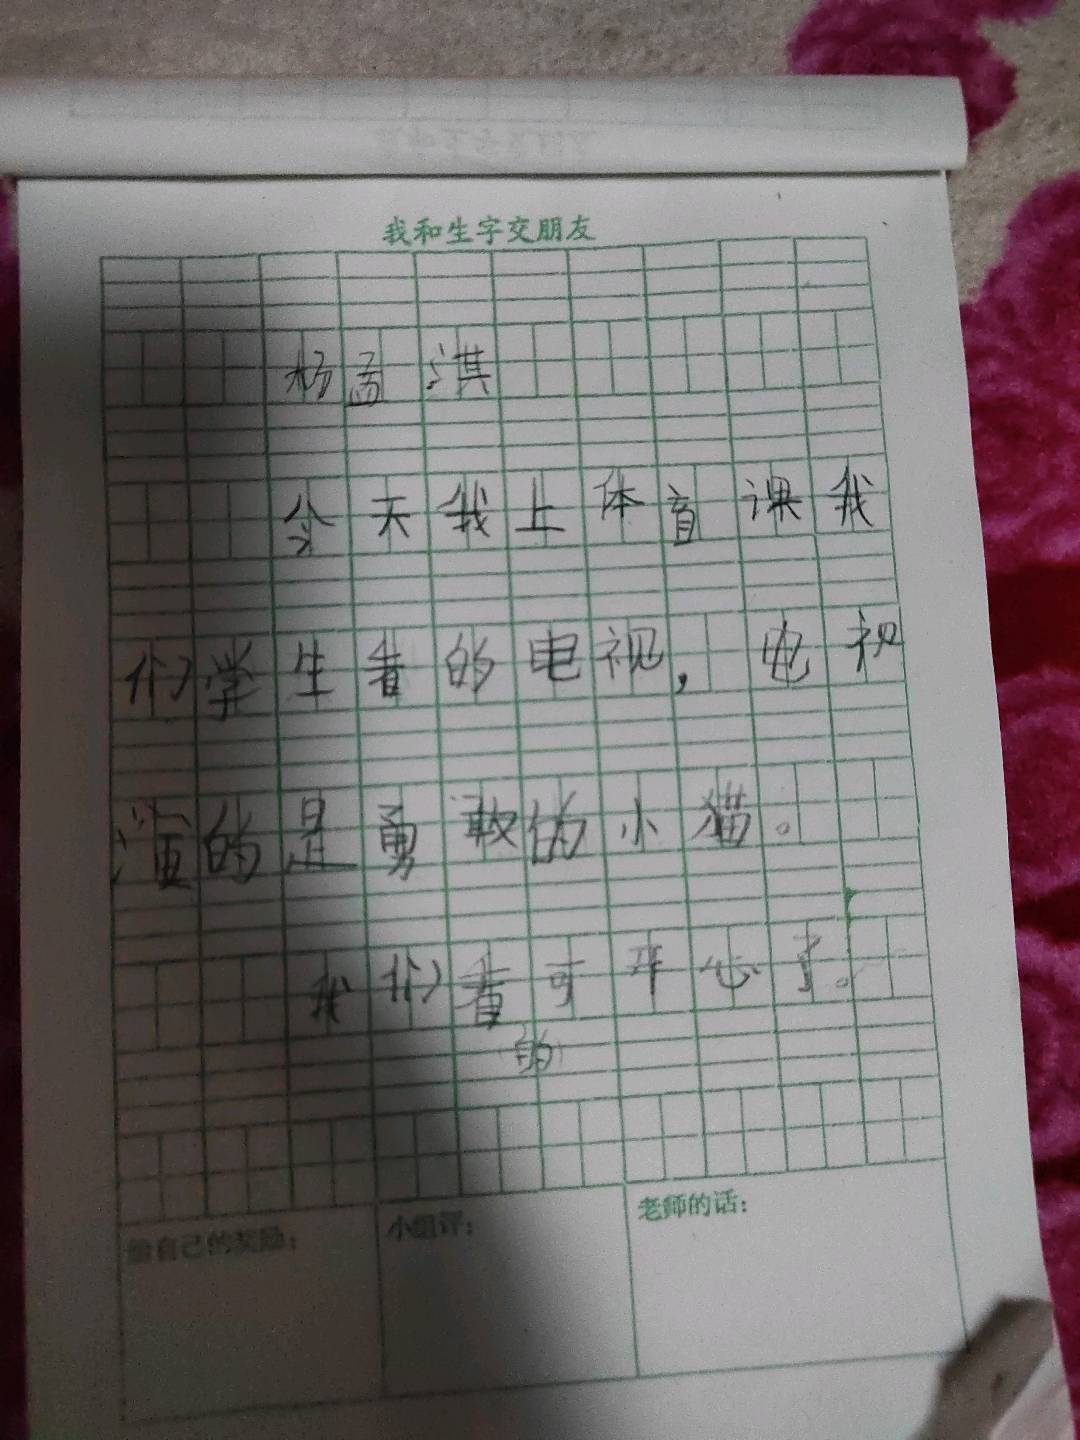 我和生字交朋友
杨孟淇
今天我上体育课我
们学生看的电视，电视
演的是勇敢的小猫。
我们看可开心了。
的
给自己的奖励：
小组评：
老师的话：